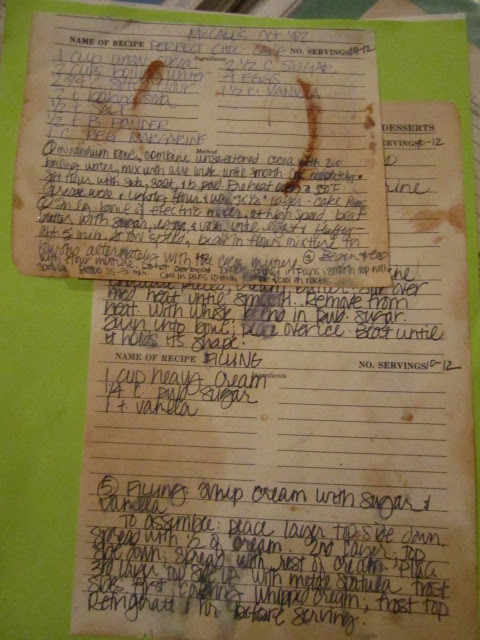 McCALLS OCT '82
NAME OF RECIPE PERFECT CHOC CAKE NO. SERVINGS 10-12
Ingredients
1 cup unsw cocoa 2 1/2 C SUGAR
2 cups boiling water 4 EGGS
2 3/4 C sifted flour 1 1/2 t. VANILLA
2 t baking soda
1/2 t salt
1/2 t B. POWDER
1 C REG MARGARINE
Method
① IN MEDIUM BOWL, combine unsweetened cocoa with 2 c
boiling water, mix with wire whisk until smooth. Cool completely.
Sift flour with soda, salt, b. pwd. Preheat oven 350 F.
Grease well & lightly flour 3 9x1 1/2" layer - cake pans
② In lg. bowl of electric mixer, at high speed, beat
butter with sugar, eggs, & van. until light & fluffy
abt. 5 min. At low speed, beat in flour mixture in
fourths alternately with the cocoa mixture
with flour mixture. Do not overbeat. in pans; smooth top with
spatula. Bake 25-30 min. Cool in pans 10 min. cool on racks.
DESSERTS
SERVINGS 10-12
over
med heat until smooth. Remove from
heat. With whisk, blend in pwd. sugar.
Turn into bowl; place over ice. Beat until
it holds its shape.
NAME OF RECIPE FILLING NO. SERVINGS 10-12
Ingredients
1 cup heavy cream
1/4 c. pwd sugar
1 t vanilla
⑤ FILLING: Whip cream with sugar &
vanilla
To assemble: place layer top side down.
Spread with 1/2 of cream. 2nd layer: top
side down; spread with rest of cream. Place
3rd layer top side up. With metal spatula frost
sides first covering whipped cream; frost top.
Refrigerate 1 hr before serving.